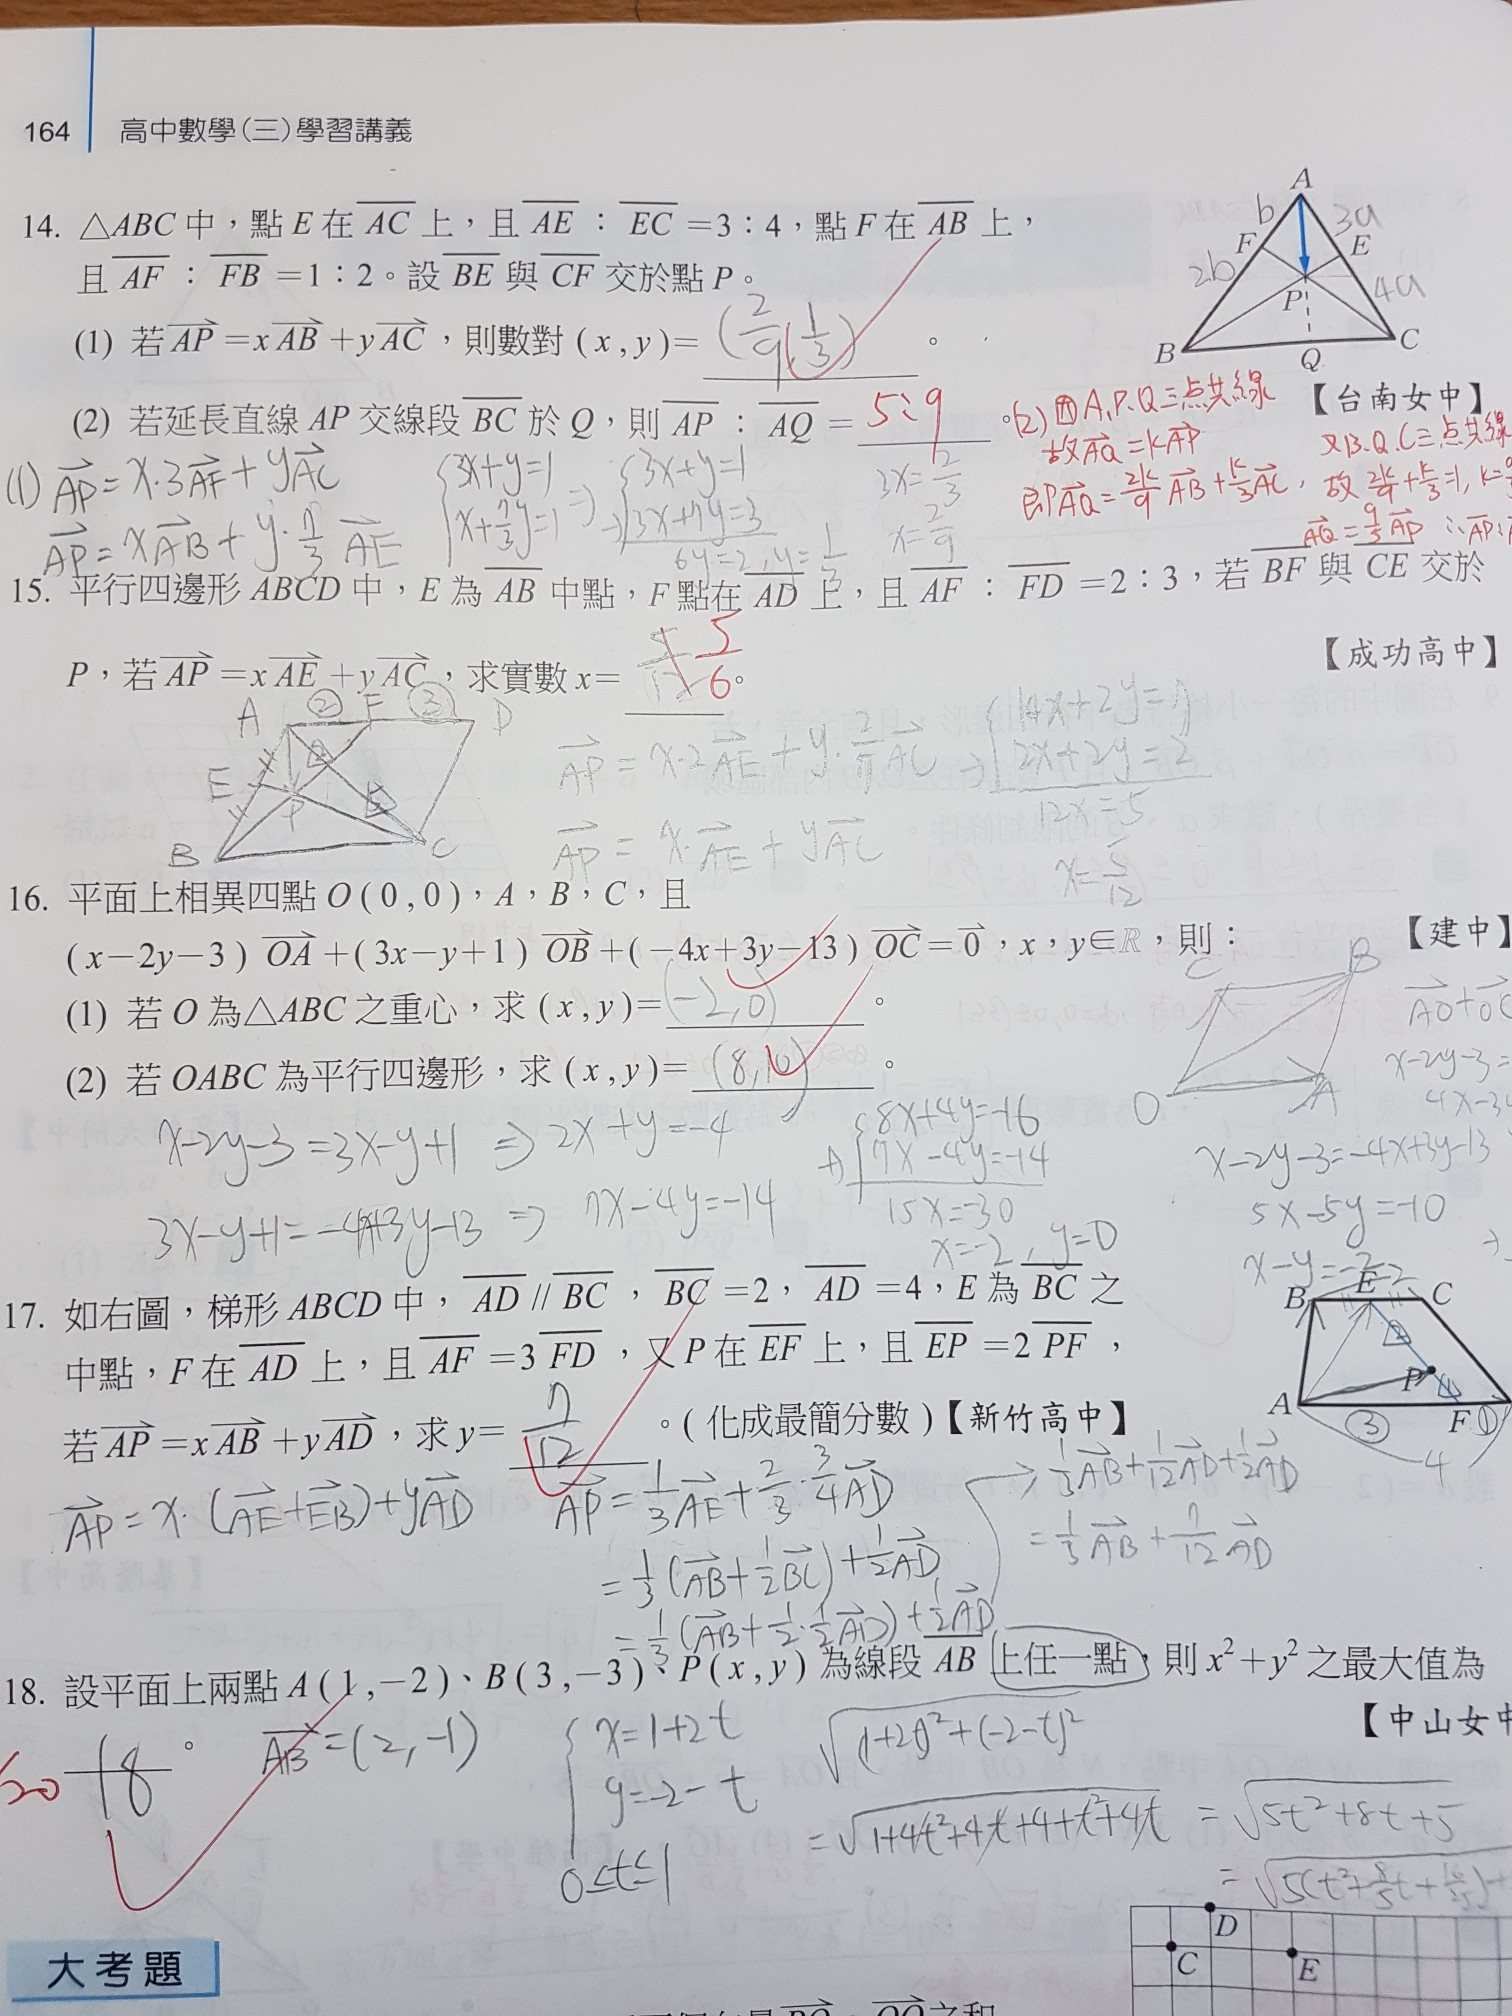 164 高中數學(三)學習講義
14. △ABC 中，點 E 在 AC 上，且 AE：EC＝3：4，點 F 在 AB 上，
且 AF：FB＝1：2。設 BE 與 CF 交於點 P。
(1) 若 AP＝xAB＋yAC，則數對 (x,y)＝ (2/9, 1/3) 。
(2) 若延長直線 AP 交線段 BC 於 Q，則 AP：AQ＝ 5:9 。
【台南女中】
A
b
3a
F
E
2b
P
4a
B
Q
C
(2) 因A,P,Q三点共線
故AQ=kAP
又B,Q,C三点共線
即AQ=2k/9 AB+k/3 AC，故 2k/9+k/3=1, k=
AQ=9/5 AP ∴AP:
(1) AP=x·3AF+yAC
AP=xAB+y·7/3 AE
3x+y=1
x+7/3y=1
⇒
3x+y=1
3x+7y=3
6y=2, y=1/3
3x=2/3
x=2/9
15. 平行四邊形 ABCD 中，E 為 AB 中點，F 點在 AD 上，且 AF：FD＝2：3，若 BF 與 CE 交於
P，若 AP＝xAE＋yAC，求實數 x＝ 5/12 5/6 。
【成功高中】
A ② F ③ D
E
P
B
C
AP=x·2AE+y·2/7AC ⇒
14x+2y=7
2x+2y=2
12x=5
x=5/12
AP=x·AE+yAC
16. 平面上相異四點 O(0,0)，A，B，C，且
(x−2y−3) OA＋(3x−y＋1) OB＋(−4x＋3y−13) OC＝0，x，y∈ℝ，則：
【建中】
(1) 若 O 為△ABC 之重心，求 (x,y)＝ (-2,0) 。
(2) 若 OABC 為平行四邊形，求 (x,y)＝ (8,10) 。
C
B
O
A
AO+OC
x-2y-3=
4x-3y
x-2y-3=3x-y+1 ⇒ 2x+y=-4
3x-y+1=-4x+3y-13 ⇒ 7x-4y=-14
8x+4y=-16
+) 7x-4y=-14
15x=-30
x=-2, y=0
x-2y-3=-4x+3y-13
5x-5y=-10
x-y=-2
17. 如右圖，梯形 ABCD 中，AD // BC，BC＝2，AD＝4，E 為 BC 之
中點，F 在 AD 上，且 AF＝3FD，又 P 在 EF 上，且 EP＝2PF，
若 AP＝xAB＋yAD，求 y＝ 7/12 。(化成最簡分數)【新竹高中】
2
B
E
C
P
A
③
F
①
4
AP=x·(AE+EB)+yAD
AP=1/3AE+2/3·3/4AD
=1/3(AB+1/2BC)+1/2AD
=1/3(AB+1/2·1/2AD)+1/2AD
→1/3AB+1/12AD+1/2AD
=1/3AB+7/12AD
18. 設平面上兩點 A(1,−2)、B(3,−3)、P(x,y) 為線段 AB 上任一點，則 x²＋y² 之最大值為
18 。
【中山女中
AB=(2,-1)
x=1+2t
y=-2-t
0≤t≤1
√(1+2t)²+(-2-t)²
=√1+4t²+4t+4+t²+4t
=√5t²+8t+5
=√5(t²+8/5t+16/25)+
大考題
D
C
E